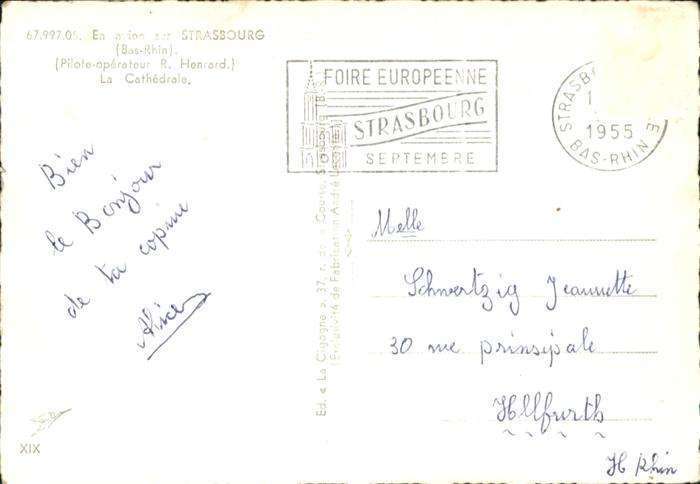 67.997.05. En avion sur STRASBOURG
(Bas-Rhin).
(Pilote-opérateur R. Henrard.)
La Cathédrale.
FOIRE EUROPEENNE
STRASBOURG
SEPTEMBRE
STRASBO
1
1955
BAS-RHIN
Bien
le Bonjour
de ta copine
Alice
Ed. « La Cigogne », 37, r. de la Course, Strasbourg
(Exclusivité de Fabrication André
Melle
Schwertzig Jeannette
30 rue prinsipale
Illfurth
H Rhin
XIX